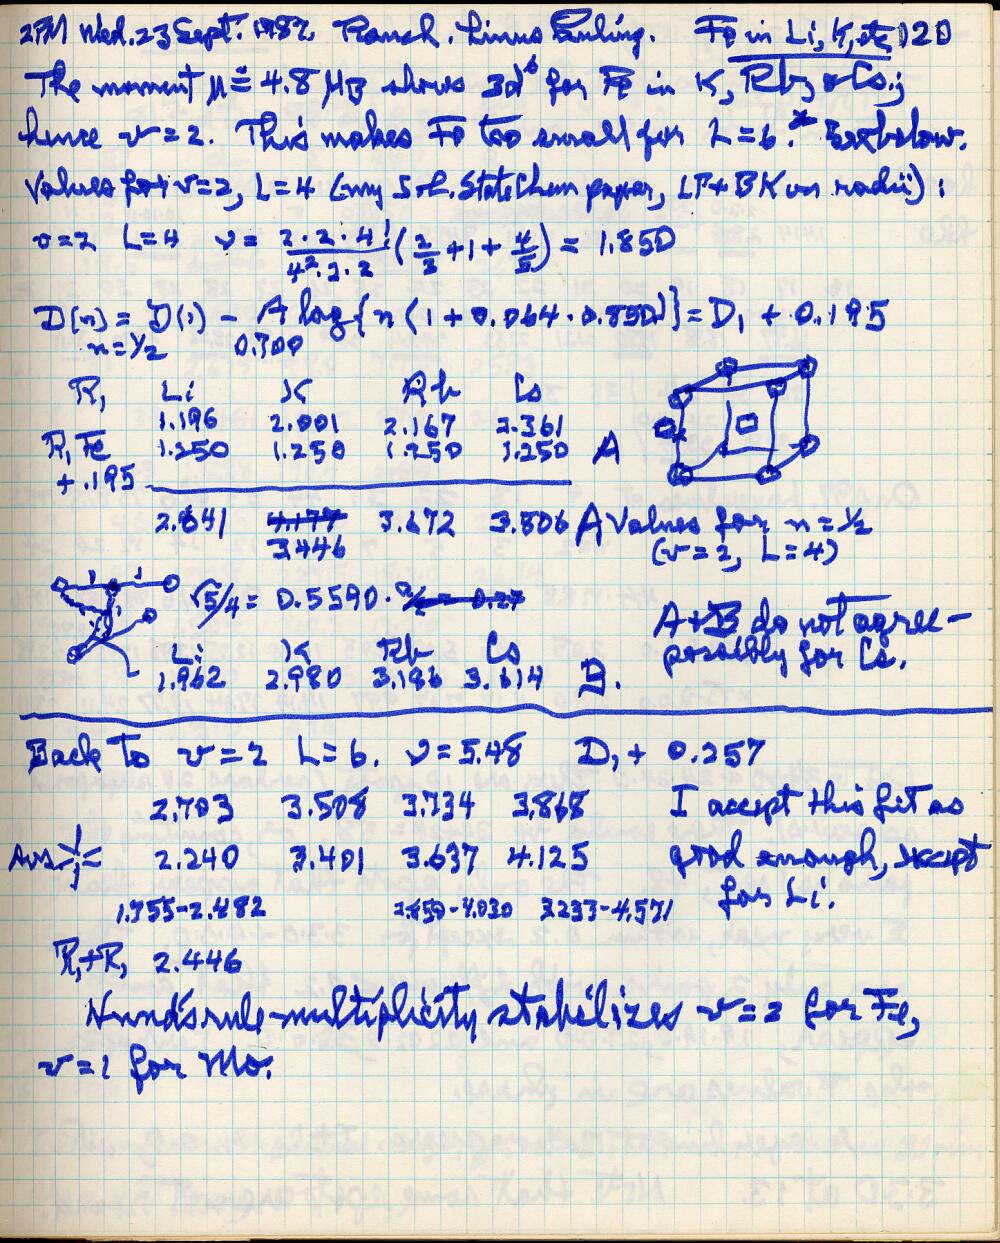 2PM Wed. 23 Sept. 1987. Ranch. Linus Pauling. Fe in Li, K, etc 120
The moment μ ≐ 4.8 μB shows 3d⁶ for Fe in K, Rb, & Cs;
hence v = 2. This makes Fe too small for L = 6.* See below.
Values for v = 2, L = 4 (my Sol. State Chem paper, LP + BK on radii):
v = 2 L = 4 ν = 2·2·4!/4²·2·2 (2/3 + 1 + 4/5) = 1.850
D(n) = D(1) − A log{n(1 + 0.064·0.850)} = D₁ + 0.195
n = 1/2 0.700
R₁ Li K Rb Cs
1.196 2.001 2.167 2.361
R₁ Fe 1.250 1.250 1.250 1.250 A
+ .195
2.641 4.177 3.672 3.806 A Values for n = 1/2
3.446 (v = 2, L = 4)
√5/4 = 0.5590·a/
A + B do not agree –
possibly for Cs.
Li K Rb Cs
1.962 2.980 3.186 3.614 B.
Back to v = 2 L = 6. ν = 5.48 D₁ + 0.257
2.703 3.508 3.734 3.868 I accept this fit as
2.240 3.401 3.637 4.125 good enough, except
for Li.
1.755–2.482 3.233–4.571
R₁+R₁ 2.446
Hund's rule-multiplicity stabilizes v = 2 for Fe,
v = 1 for Mo.